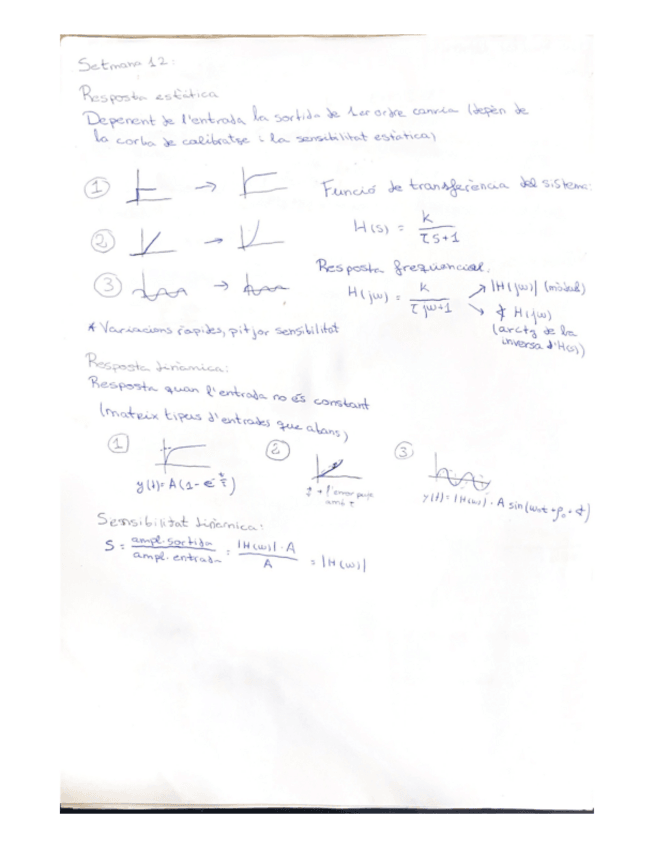 Setmana 12:
Resposta estàtica
Depenent de l'entrada la sortida de 1er ordre canvia (depèn de
la corba de calibratge i la sensibilitat estàtica)
① → Funció de transferència del sistema:
② → H(s) = k / τs+1
③ → Resposta freqüencial.
H(jω) = k / τjω+1 → |H(jω)| (mòdul)
→ ∡ H(jω)
(arctg de la
inversa d'H(s))
* Variacions ràpides, pitjor sensibilitat
Resposta dinàmica:
Resposta quan l'entrada no és constant
(mateix tipus d'entrades que abans)
① ② ③
y(t)= A(1- e^-t/τ)
l'error puja
amb τ
y(t)= |H(ω)| · A sin(ω₀t + ρ₀ + ∡)
Sensibilitat dinàmica:
S = ampl. sortida / ampl. entrada = |H(ω)| · A / A = |H(ω)|